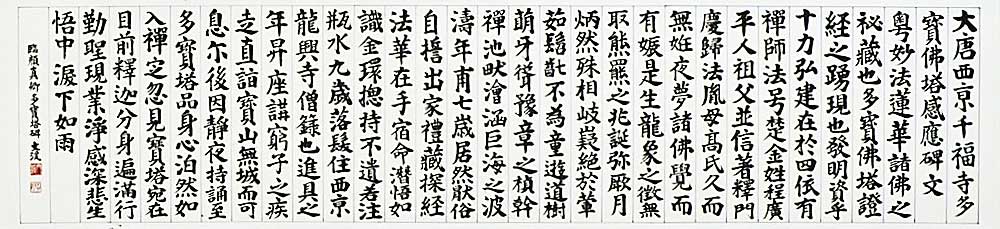 大唐西京千福寺多
寶佛塔感應碑文
粤妙法蓮華諸佛之
秘藏也多寶佛塔證
經之踴現也發明資乎
十力弘建在於四依有
禪師法号楚金姓程廣
平人祖父並信著釋門
慶歸法胤母高氏久而
無妊夜夢諸佛覺而
有娠是生龍象之徵無
取熊羆之兆誕弥厥月
炳然殊相岐嶷絕於葷
茹髫齓不為童遊道樹
萌牙聳豫章之楨幹
禪池畎澮涵巨海之波
濤年甫七歲居然猒俗
自誓出家禮藏探經
法華在手宿命潛悟如
識金環揔持不遺若注
瓶水九歲落髮住西京
龍興寺僧籙也進具之
年昇座講窮子之疾
走直詣寶山無城而可
息尒後因靜夜持誦至
多寶塔品身心泊然如
入禪定忽見寶塔宛在
目前釋迦分身遍滿行
勤聖現業淨感深悲生
悟中淚下如雨
臨顏真卿多寶塔碑